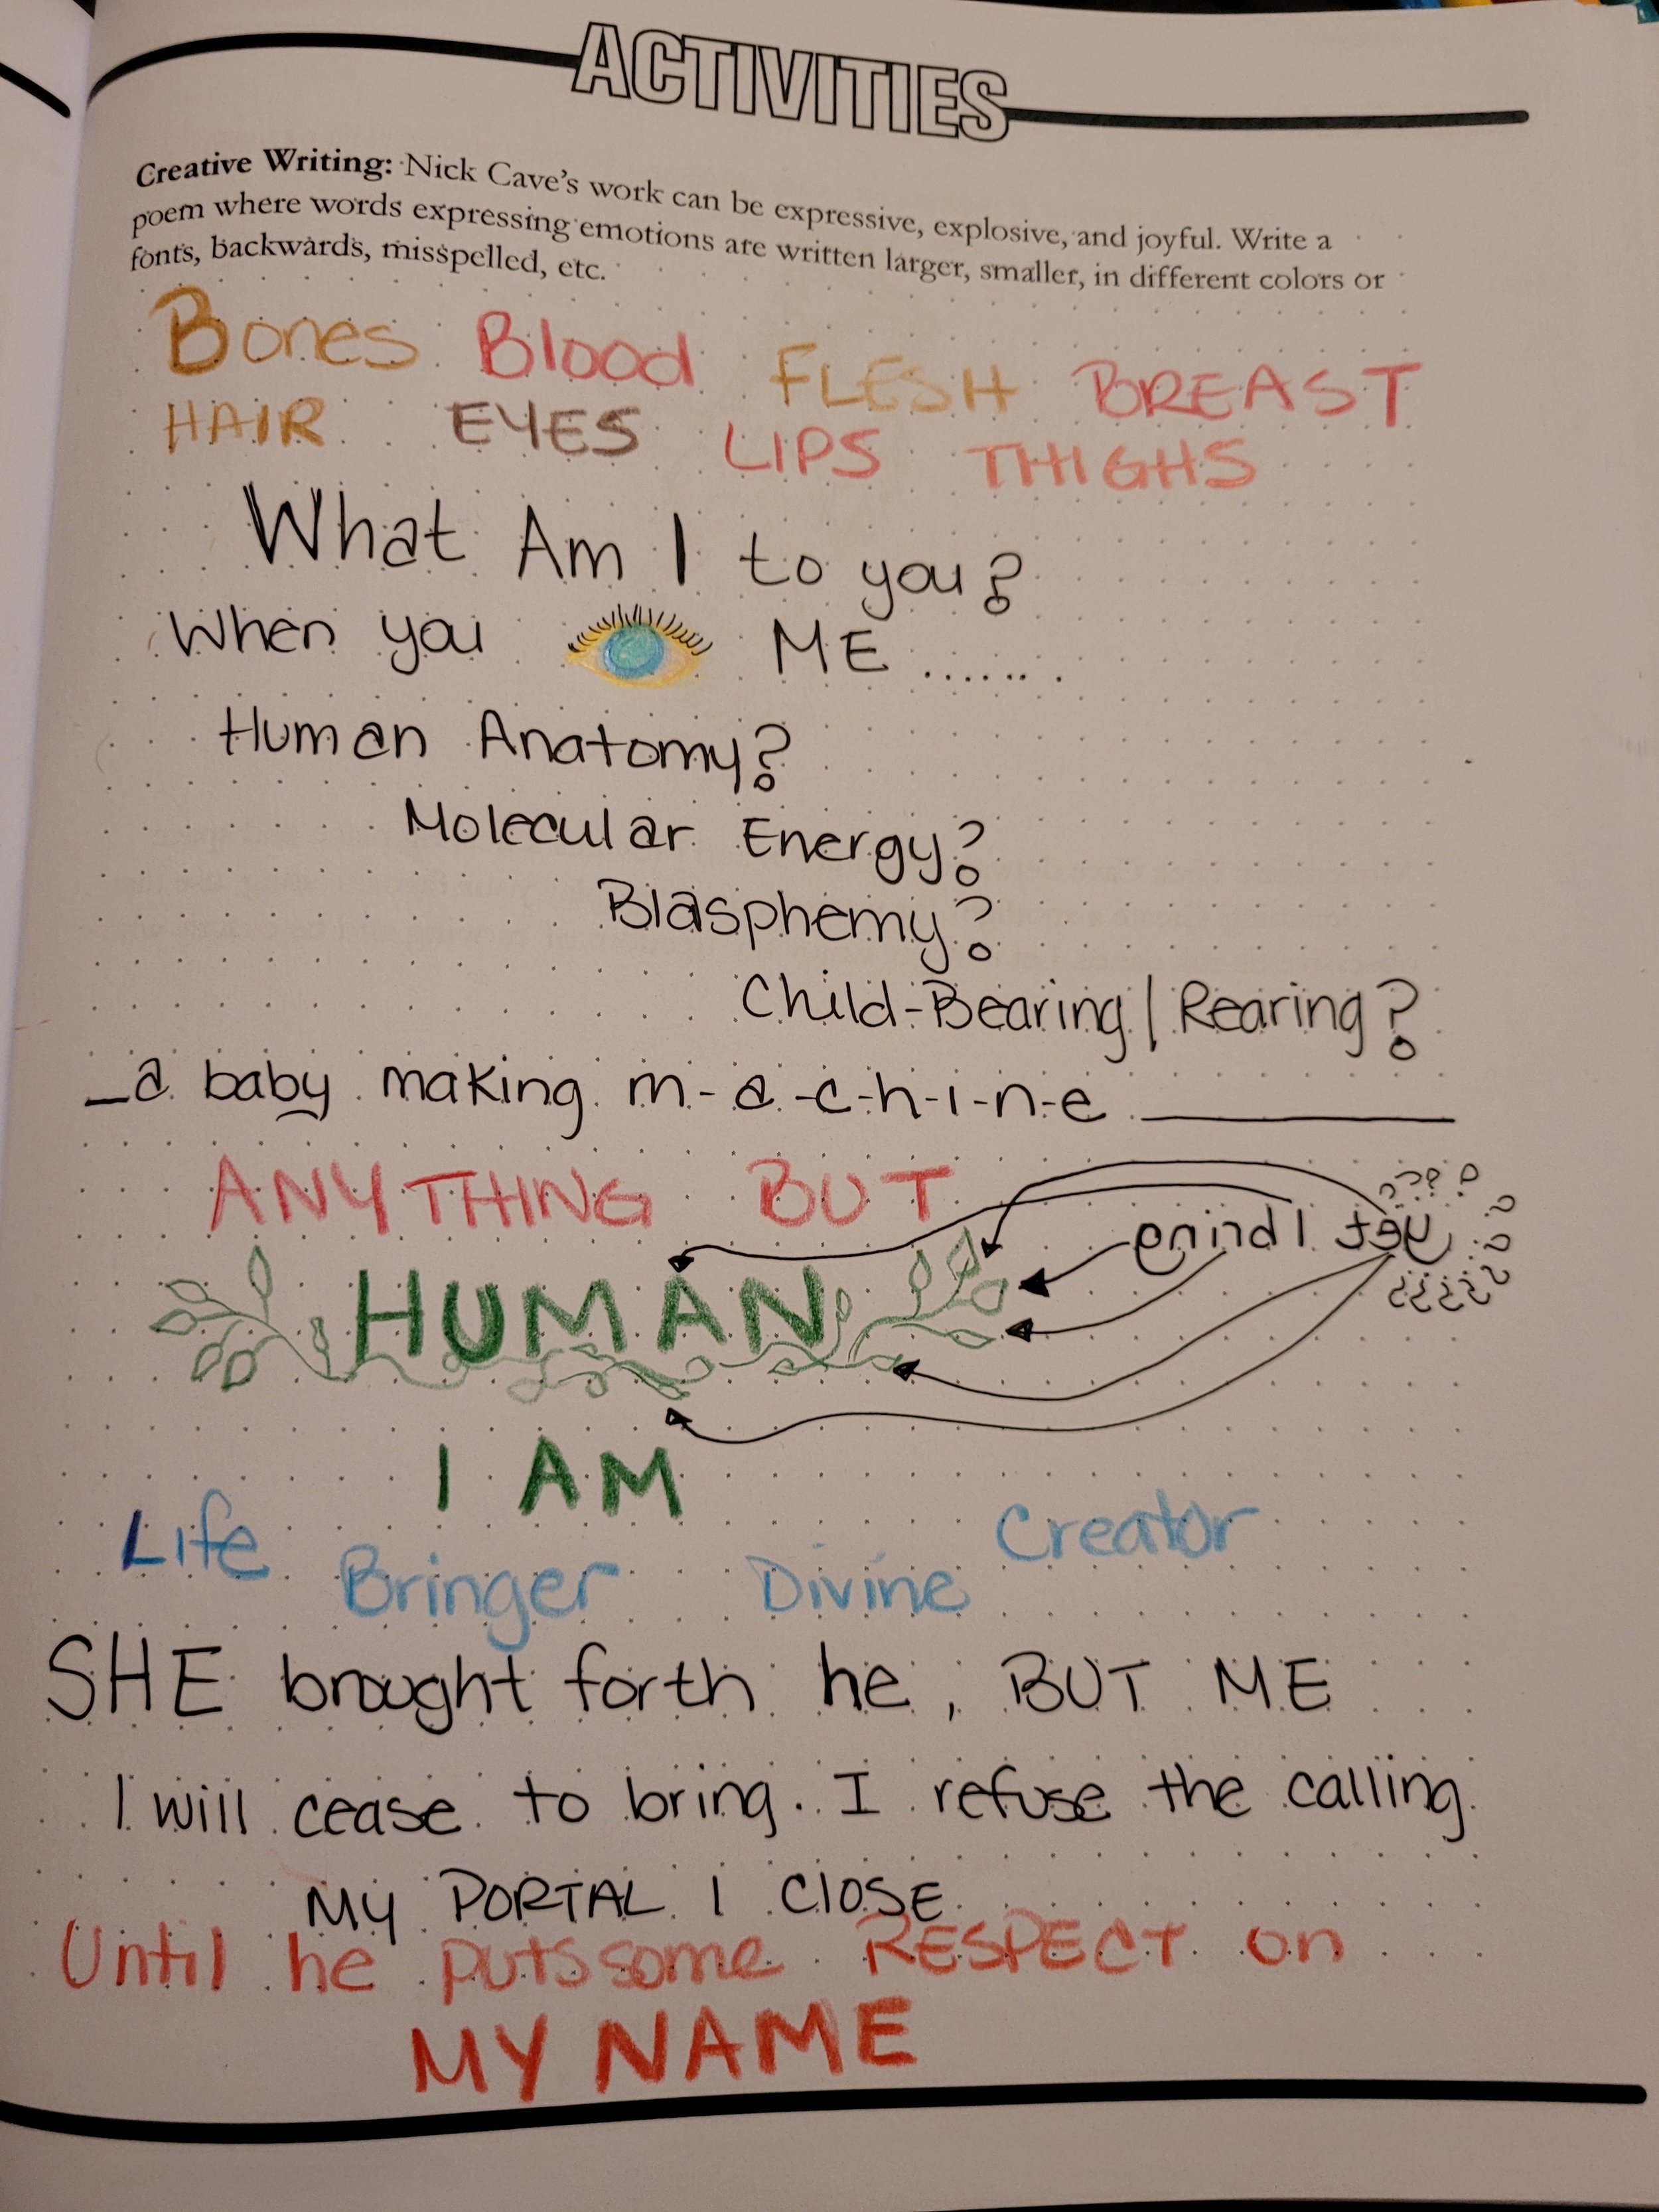 ACTIVITIES
Creative Writing: Nick Cave's work can be expressive, explosive, and joyful. Write a
poem where words expressing emotions are written larger, smaller, in different colors or
fonts, backwards, misspelled, etc.
Bones Blood FLESH BREAST
HAIR EYES LIPS THIGHS
What Am I to you?
When you ME .......
Human Anatomy?
Molecular Energy?
Blasphemy?
Child-Bearing/Rearing?
_a baby making m-a-c-h-i-n-e ______
ANYTHING BUT
Yet I bring
HUMAN
I AM
Life Bringer Divine Creator
SHE brought forth he, BUT ME
I will cease to bring. I refuse the calling
MY PORTAL I ClOSE
Until he puts some RESPECT on
MY NAME